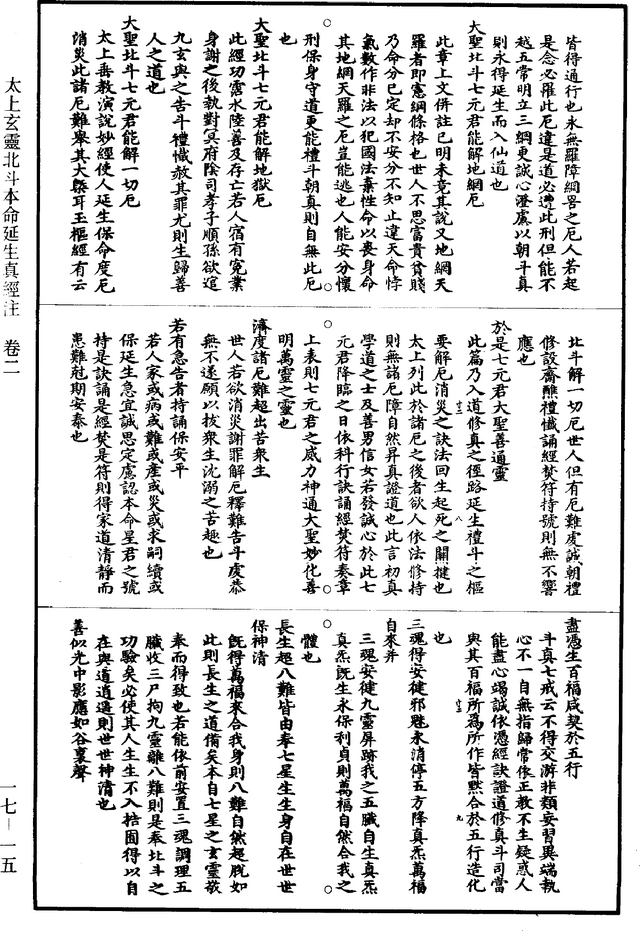 太上玄靈北斗本命延生真經注　卷二
一七—一五
皆得通行也永無羅障網罟之厄人若起
是念必罹此厄違是道必遭此刑但能不
越五常明立三綱更誠心澄慮以朝斗真
則永得延生而入仙道也
大聖北斗七元君能解地網厄
此章上文併註已明未竟其說又地網天
羅者即憲綱條格也世人不思富貴貧賤
乃命分已定却不安分不知止違天命悖
氣數作非法以犯國法棄性命以喪身命
其地網天羅之厄豈能逃也人能安分懷
刑保身守道更能禮斗朝真則自無此厄
也
大聖北斗七元君能解地獄厄
此經功霑水陸善及存亡若人宿有冤業
身謝之後執對冥府陰司孝子順孫欲追
九玄與之告斗禮懺赦其罪尤則生歸善
人之道也
大聖北斗七元君能解一切厄
太上垂教演說妙經使人延生保命度厄
消災此諸厄難舉其大槩耳玉樞經有云
北斗解一切厄世人但有厄難虔誠朝禮
修設齋醮禮懺誦經焚符持號則無不響
應也
於是七元君大聖善通靈
此篇乃入道修真之徑路延生禮斗之樞
要解厄消災之訣法回生起死之關揵也
太上列此於諸厄之後者欲人依法修持
則無諸厄障自然昇真證道也此言初真
學道之士及善男信女若發誠心於此七
元君降臨之日依科行訣誦經焚符奏章
上表則七元君之威力神通大聖妙化善
明萬靈之靈也
濟度諸厄難超出苦衆生
世人若欲消災謝罪解厄釋難告斗虔恭
無不遂願以拔衆生沈溺之苦趣也
若有急告者持誦保安平
若人家或病或難或產或災或求嗣續或
保延生急宜誠思定慮認本命星君之號
持是訣誦是經焚是符則得家道清靜而
患難尅期安泰也
盡憑生百福咸契於五行
斗真七戒云不得交游非類妄習異端執
心不一自無指歸常依正教不生疑惑人
能盡心竭誠依憑經訣證道修真斗司當
與其百福所爲所作皆黙合於五行造化
也
三魂得安健邪魅永消停五方降真炁萬福
自來并
三魂安健九靈屏跡我之五臟自生真炁
真炁既生永保利貞則萬福自然合我之
體也
長生超八難皆由奉七星生生身自在世世
保神清
既得萬福來合我身則八難自然超脫如
此則長生之道備矣本自七星之玄靈敬
奉而得致也若能依前安置三魂調理五
臟收三尸拘九靈離八難則是奉北斗之
功驗矣必使其人生生不入拮囿得以自
在與道逍遥則世世神清也
善似光中影應如谷裏聲